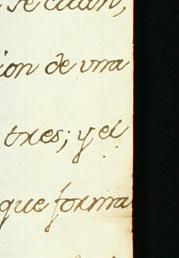 se citan,
ion de una
tres; y el
que forma